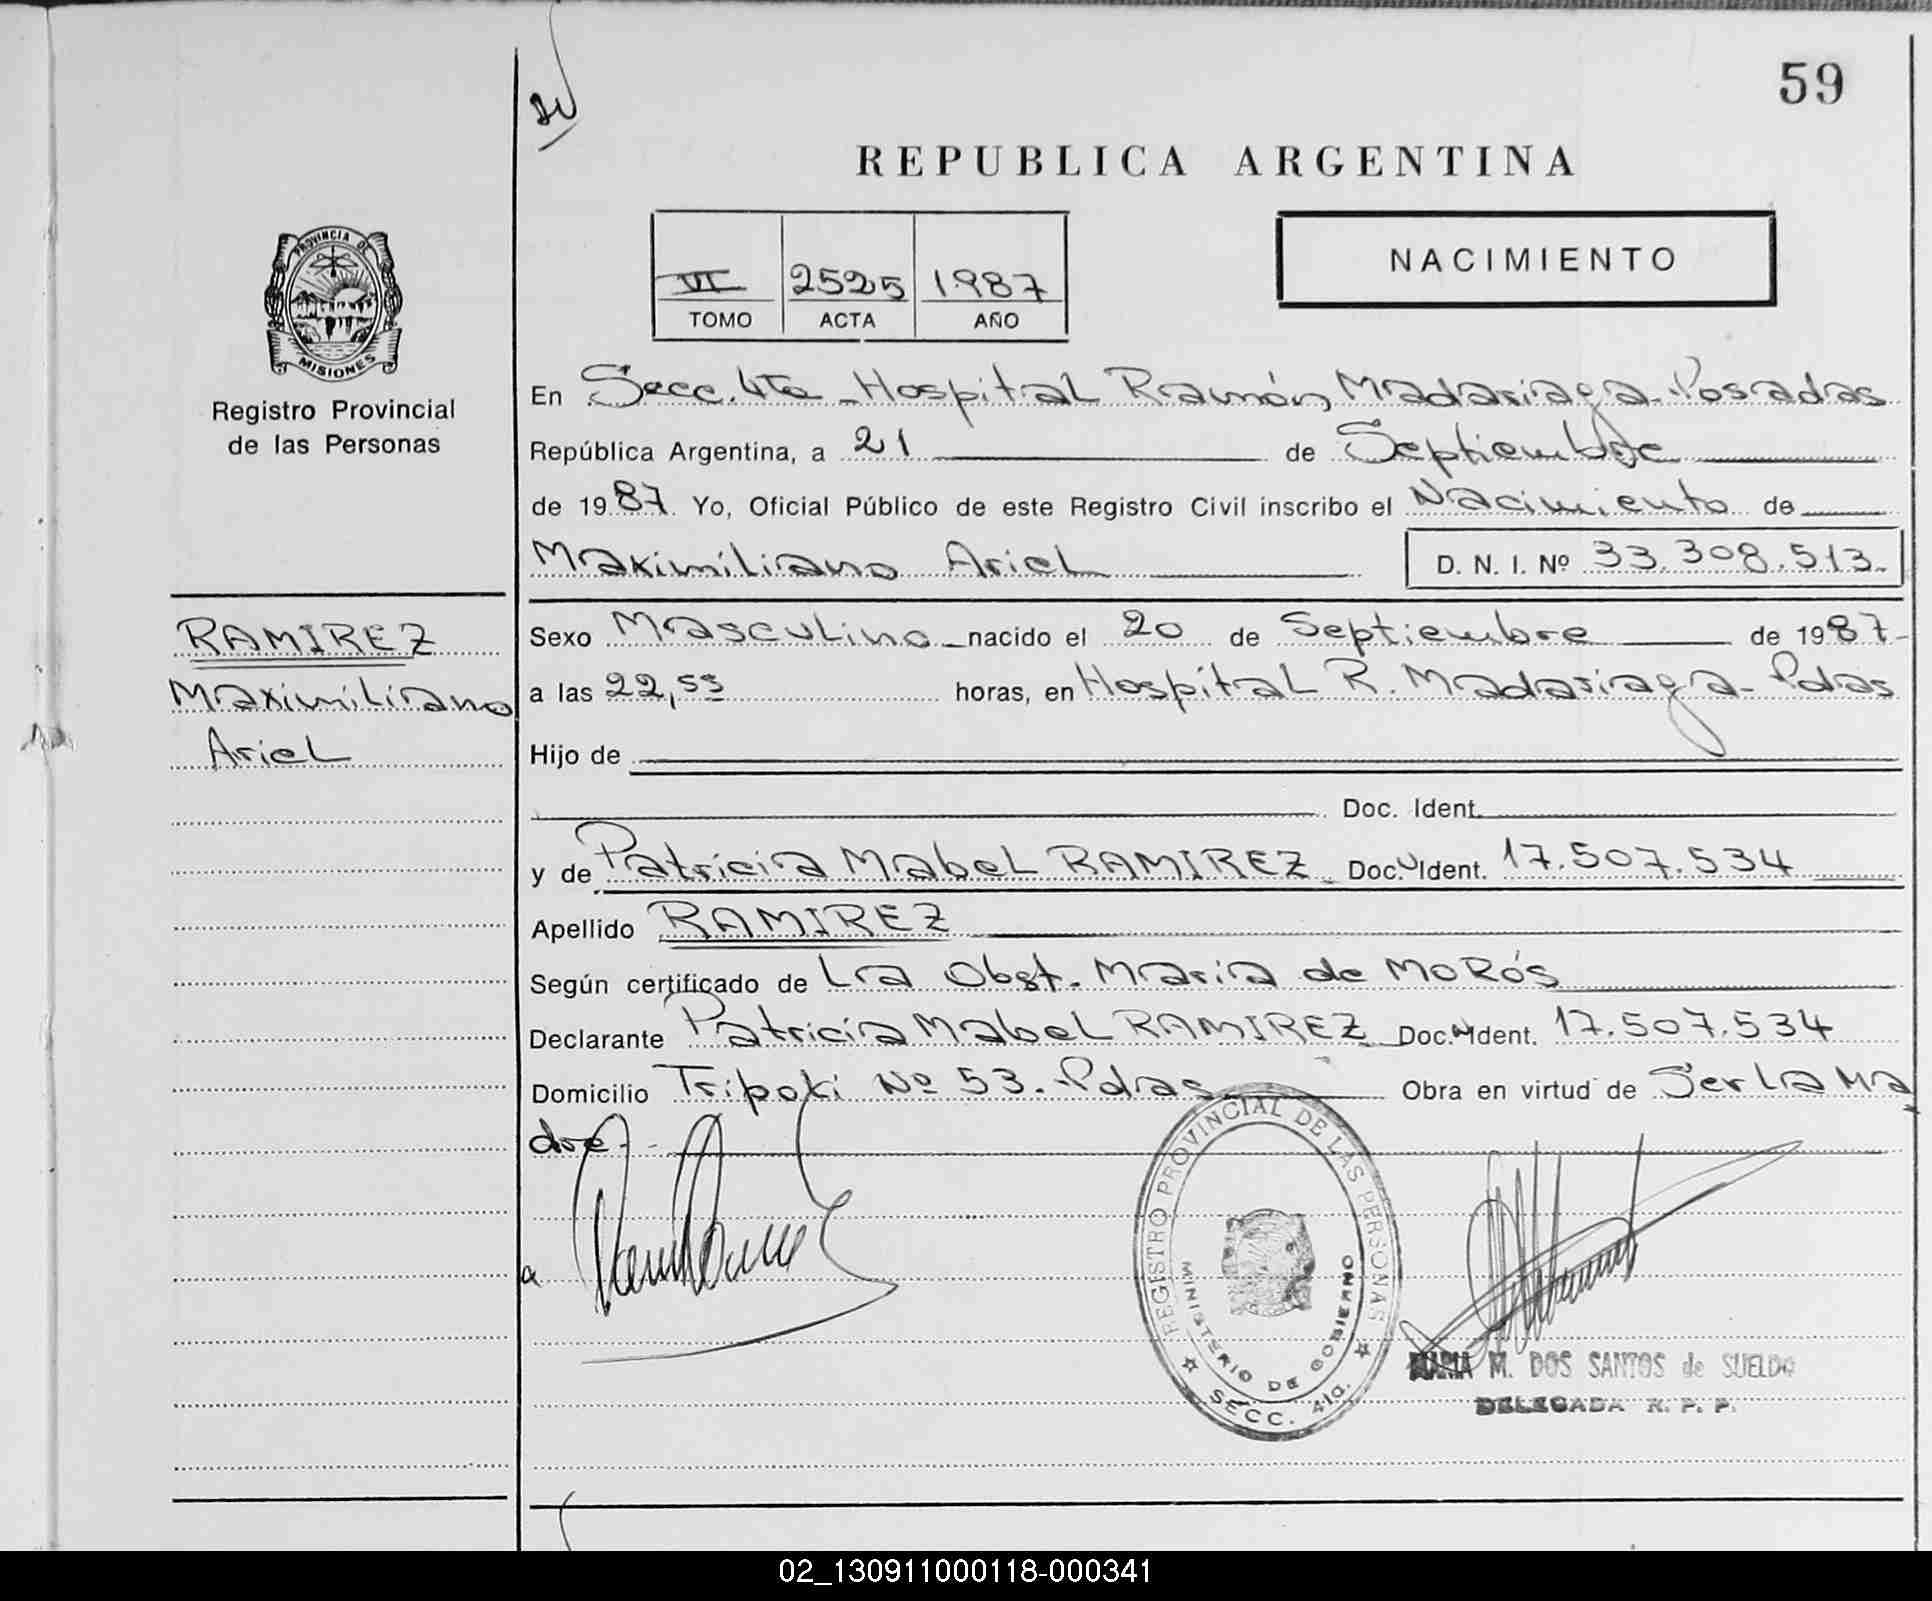 59
REPUBLICA ARGENTINA
VI 2525 1987
TOMO ACTA AÑO
NACIMIENTO
PROVINCIA DE
MISIONES
Registro Provincial
de las Personas
En Secc. 4ta - Hospital Ramón Madariaga - Posadas
República Argentina, a 21 de Septiembre
de 1987. Yo, Oficial Público de este Registro Civil inscribo el Nacimiento de
Maximiliano Ariel
D. N. I. Nº 33.308.513.-
RAMIREZ
Maximiliano
Ariel
Sexo Masculino nacido el 20 de Septiembre de 1987-
a las 22,55 horas, en Hospital R. Madariaga - Pdas
Hijo de
Doc. Ident.
y de Patricia Mabel RAMIREZ - Doc. Ident. 17.507.534
Apellido RAMIREZ
Según certificado de La Obst. Maria de MORÓS
Declarante Patricia Mabel RAMIREZ - Doc. Ident. 17.507.534
Domicilio Tripoki Nº 53.- Pdas Obra en virtud de Ser La Ma
dre -
REGISTRO PROVINCIAL DE LAS PERSONAS
MINISTERIO DE GOBIERNO
SECC. 4ta.
MARIA M. DOS SANTOS de SUELDO
DELEGADA R. P. P.
02_130911000118-000341